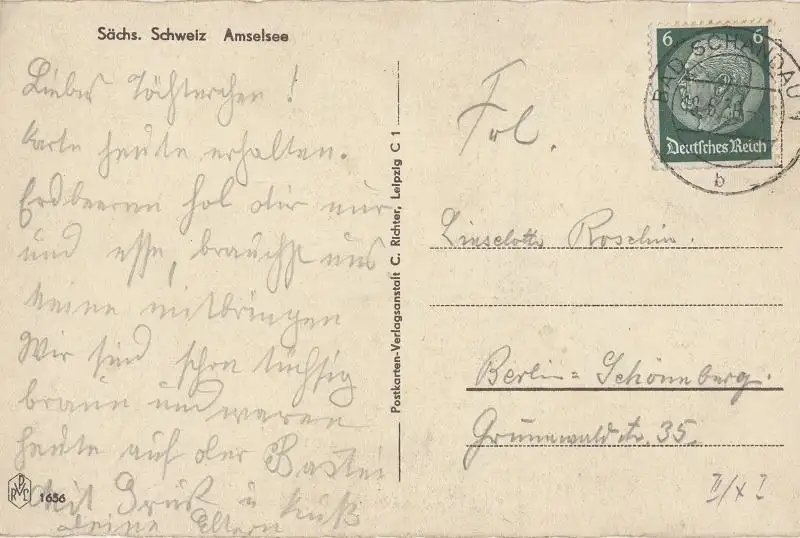 Sächs. Schweiz Amselsee
Liebes Töchterchen!
Karte heute erhalten.
Erdbeeren hol dir nur
und esse, brauchst uns
keine mitbringen
Wir sind schon tüchtig
braun und waren
heute auf der Bastei
Mit Gruß u Kuß
deine Eltern
RVDPL 1656
Postkarten-Verlagsanstalt C. Richter, Leipzig C 1
6 6
Deutsches Reich
BAD SCHANDAU 1
b
Frl.
Lieselotte Roschin.
Berlin=Schöneberg.
Grunewaldstr. 35.
II/x I